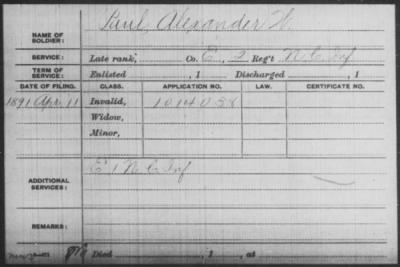 NAME OF SOLDIER: Paul, Alexander H.
SERVICE: Late rank, Co. E, 2 Reg't N. C. Inf
TERM OF SERVICE: Enlisted , 1 Discharged , 1
DATE OF FILING. CLASS. APPLICATION NO. LAW. CERTIFICATE NO.
1891 Apr. 11 Invalid, 1014038
Widow,
Minor,
ADDITIONAL SERVICES: E 1 N. C. Inf
REMARKS:
Died , 1 , at